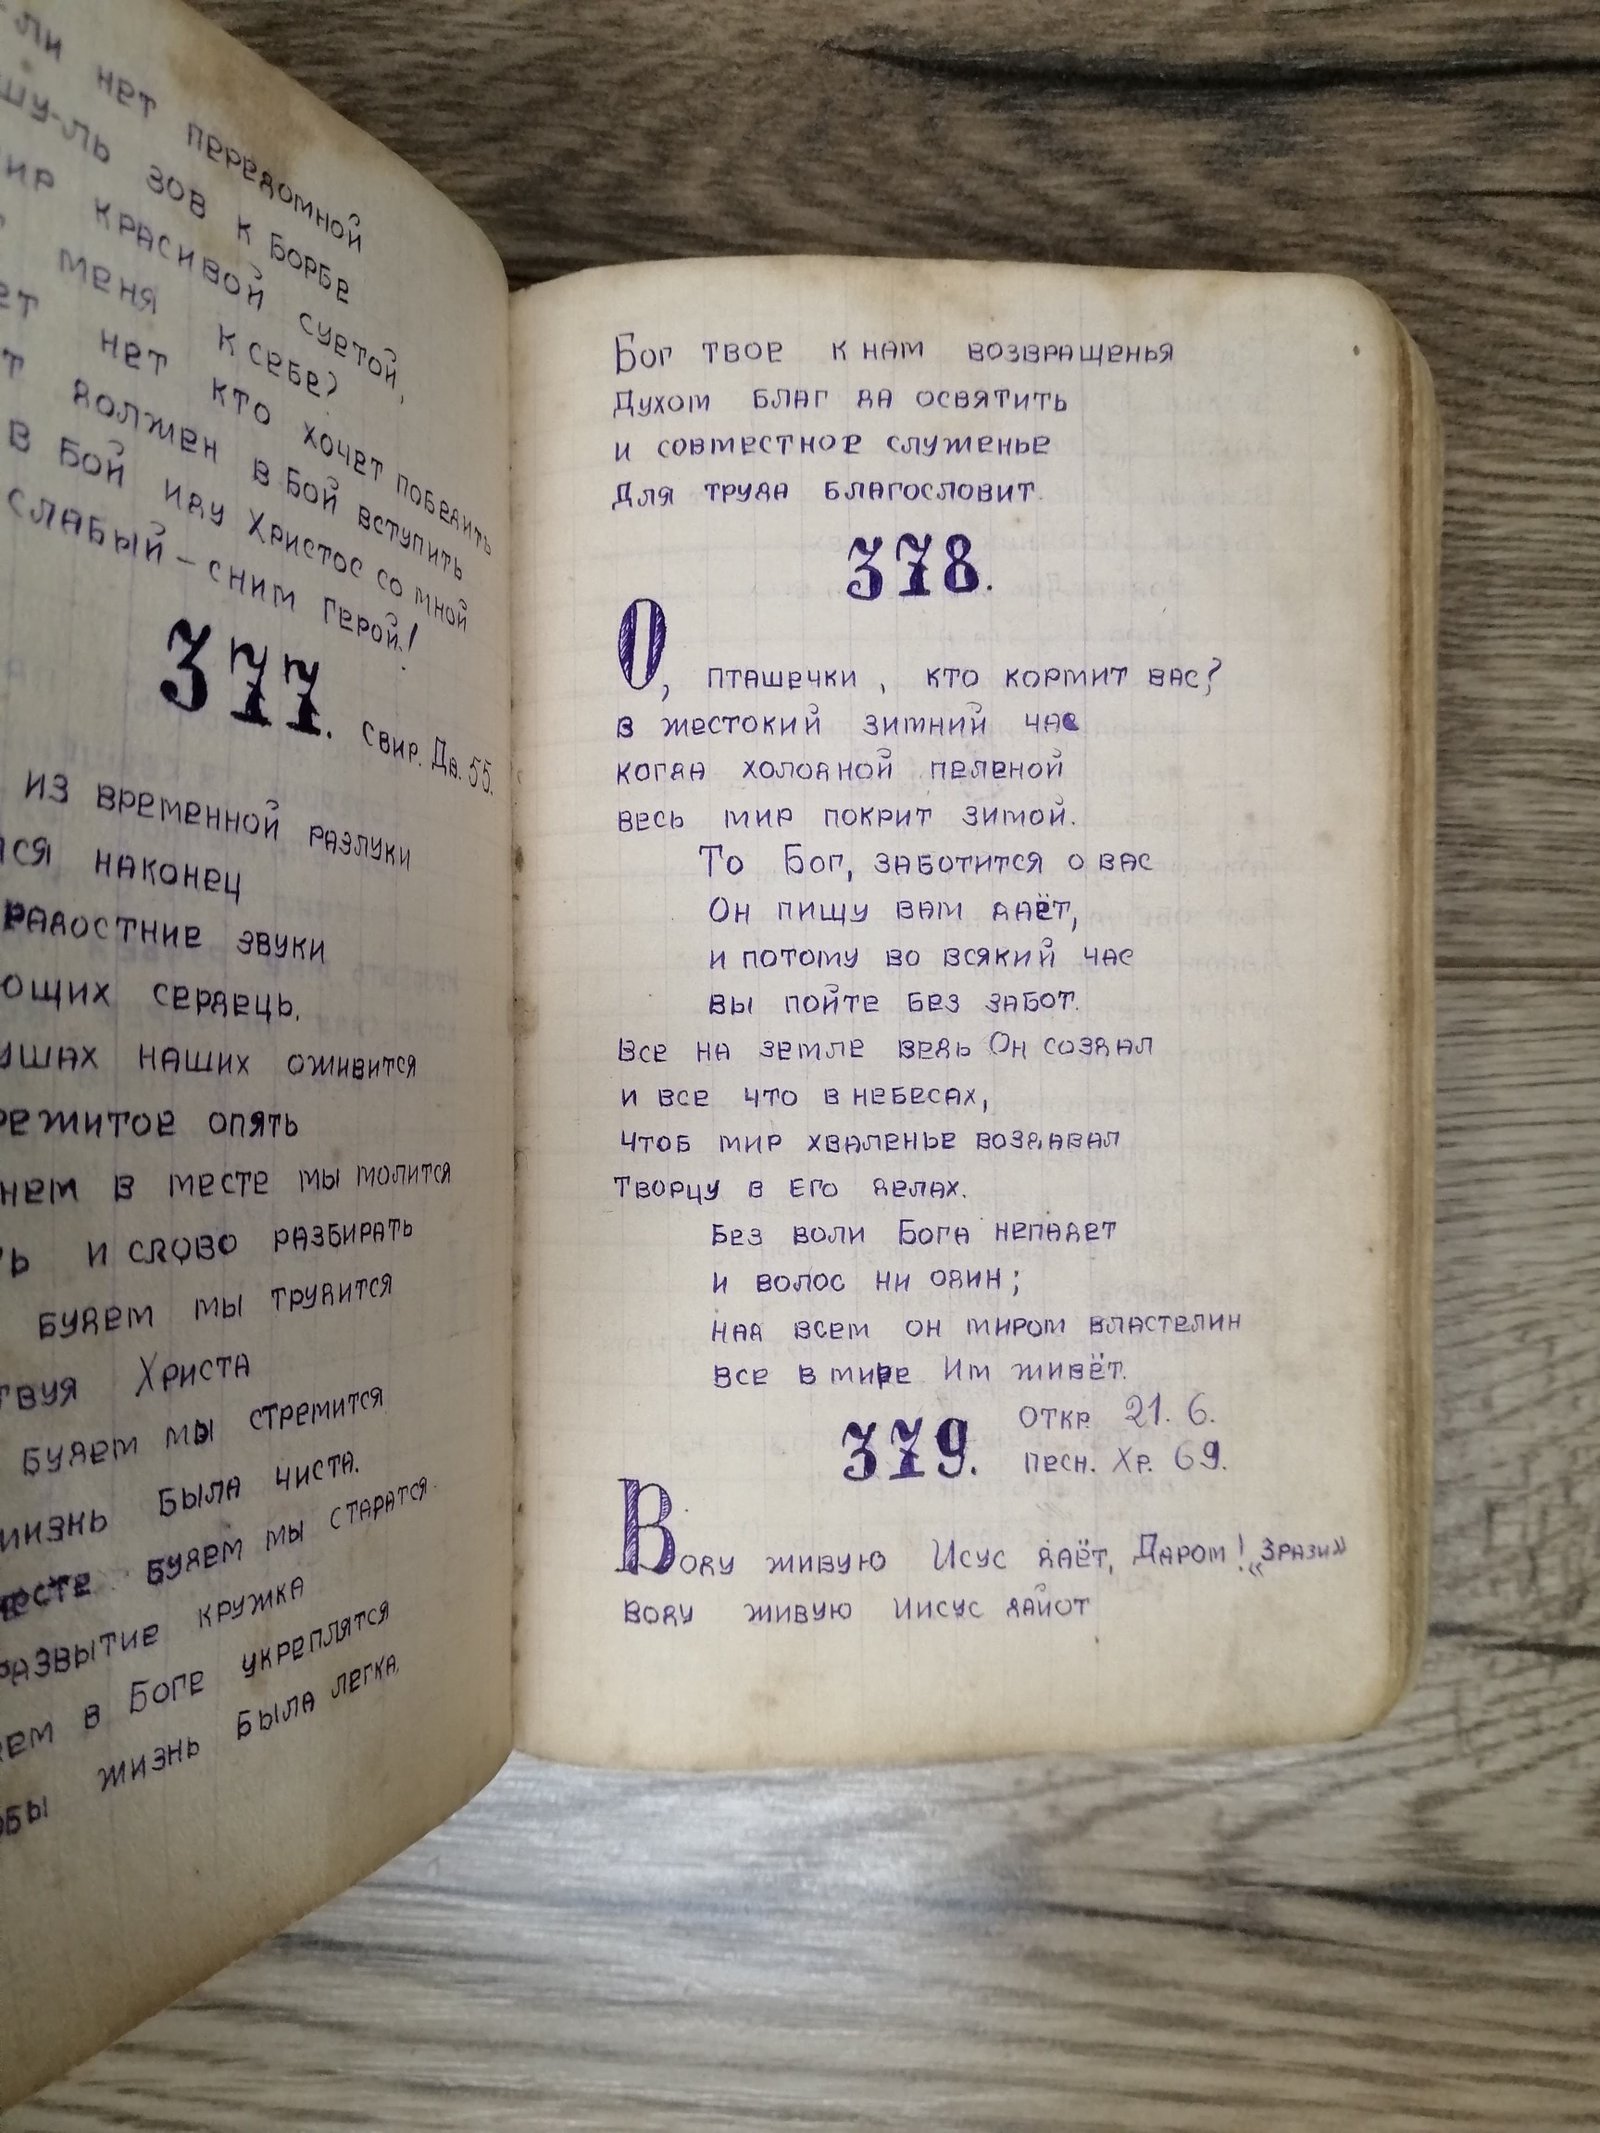 нет передомной
зов к борбе
красивой суетой,
меня к себе?
нет кто хочет победить
должен в бой вступить
в бой иду Христос со мной
слабый – сним герой!
377.
Свир. Дв. 55.
из временной разлуки
наконец
радостние звуки
сердець.
наших оживится
опять
в месте мы молится
и слово разбирать
будем мы трудится
Христа
будем мы стремится
была чиста.
будем мы старатся.
развытие кружка
в Боге укреплятся
жизнь была легка.
Бог твое к нам возвращенья
Духом благ да освятить
и совместное служенье
Для труда благословит.
378.
О, пташечки, кто кормит вас?
в жестокий зимний час
когда холодной пеленой
весь мир покрит зимой.
То Бог, заботится о вас
Он пищу вам даёт,
и потому во всякий час
вы пойте без забот.
Все на земле ведь Он создал
и все что в небесах,
чтоб мир хваленье воздавал
творцу в его делах.
Без воли Бога непадет
и волос ни один;
над всем он миром властелин
все в мире Им живёт.
379.
Откр. 21. 6.
песн. Хр. 69.
Воду живую Исус даёт, Даром! „Зрази"
воду живую Иисус дайот